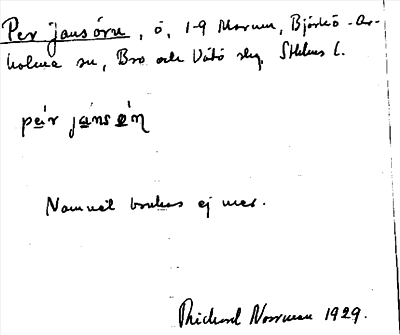 Per jansörn, ö, 1-9 Marum, Björkö-Ar-
holma sn, Bro och Vätö skg, Sthlms l.
pe̱r ja̱nsö̱ɳ
Namnet brukas ej mer.
Richard Norrman 1929.